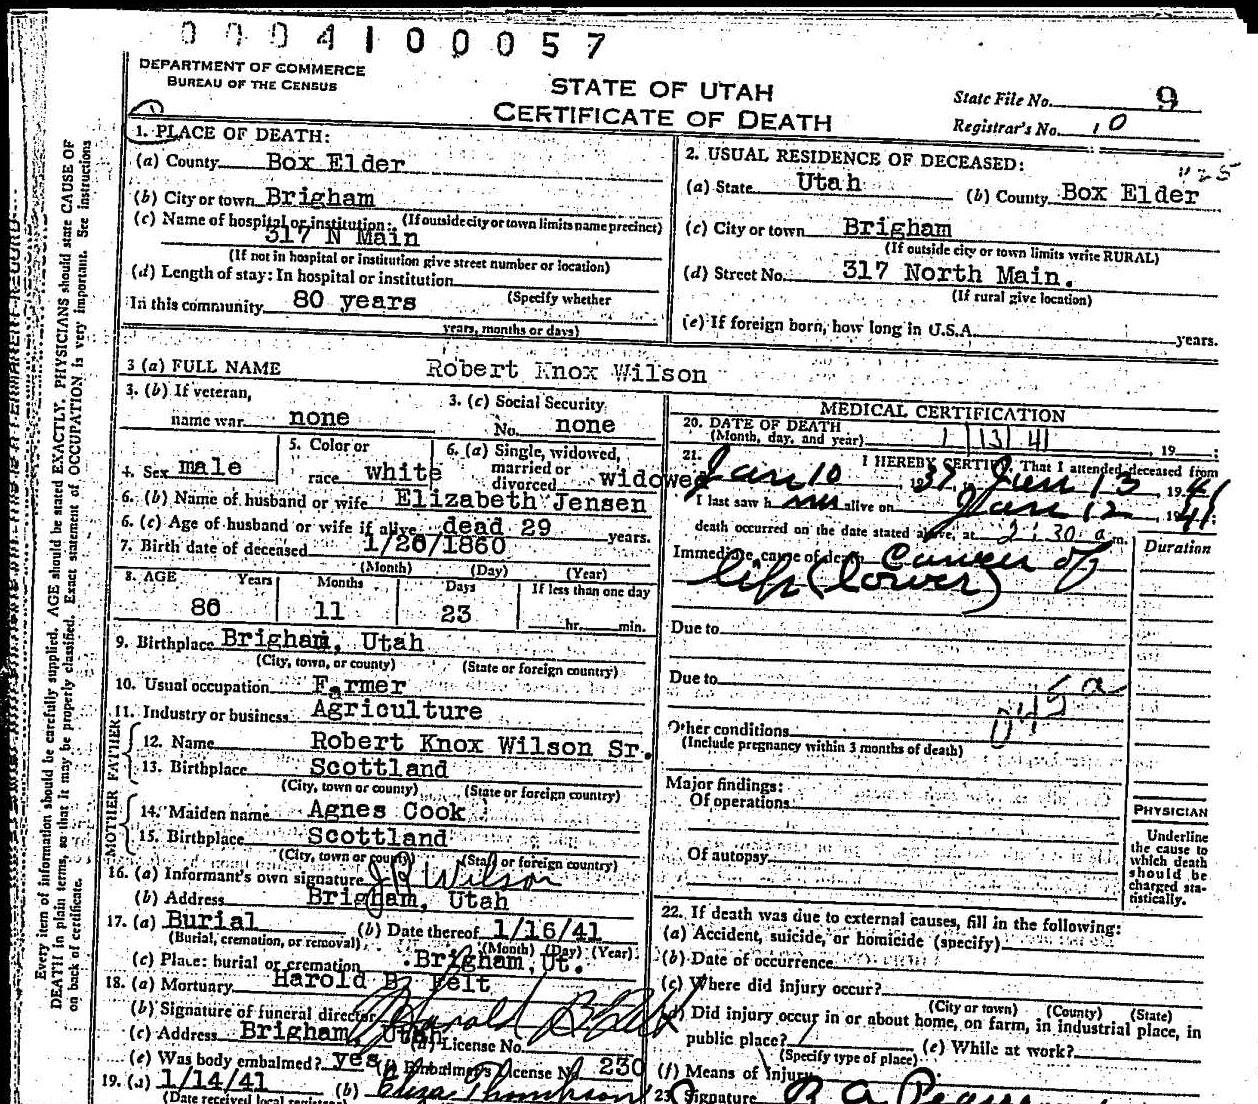 0004100057
DEPARTMENT OF COMMERCE
BUREAU OF THE CENSUS
STATE OF UTAH
CERTIFICATE OF DEATH
State File No. 9
Registrar's No. 10
1. PLACE OF DEATH:
(a) County Box Elder
(b) City or town Brigham
(c) Name of hospital or institution: (If outside city or town limits name precinct)
317 N Main
(If not in hospital or institution give street number or location)
(d) Length of stay: In hospital or institution
In this community 80 years (Specify whether
years, months or days)
2. USUAL RESIDENCE OF DECEASED:
(a) State Utah (b) County Box Elder
(c) City or town Brigham
(If outside city or town limits write RURAL)
(d) Street No. 317 North Main.
(If rural give location)
(e) If foreign born, how long in U.S.A. years.
3 (a) FULL NAME Robert Knox Wilson
3. (b) If veteran,
name war none
3. (c) Social Security
No. none
4. Sex male
5. Color or
race white
6. (a) Single, widowed,
married or
divorced widowed
6. (b) Name of husband or wife Elizabeth Jensen
6. (c) Age of husband or wife if alive dead 29 years.
7. Birth date of deceased 1/20/1860
(Month) (Day) (Year)
8. AGE Years Months Days If less than one day
80 11 23 hr. min.
9. Birthplace Brigham, Utah
(City, town, or county) (State or foreign country)
10. Usual occupation Farmer
11. Industry or business Agriculture
FATHER
12. Name Robert Knox Wilson Sr.
13. Birthplace Scottland
(City, town, or county) (State or foreign country)
MOTHER
14. Maiden name Agnes Cook
15. Birthplace Scottland
(City, town or county) (State or foreign country)
16. (a) Informant's own signature J R Wilson
(b) Address Brigham, Utah
17. (a) Burial (b) Date thereof 1/16/41
(Burial, cremation, or removal) (Month) (Day) (Year)
(c) Place: burial or cremation Brigham, Ut.
18. (a) Mortuary Harold B. Felt
(b) Signature of funeral director Harold B Felt
(c) Address Brigham, Utah (d) License No.
(e) Was body embalmed? yes (f) Embalmer's License No. 230
19. (a) 1/14/41 (b) Eliza Thompson
(Date received local
MEDICAL CERTIFICATION
20. DATE OF DEATH
(Month, day, and year) 1 13 41, 19
21. I HEREBY CERTIFY, That I attended deceased from
Jan 10, 1937, Jan 13, 1941
I last saw him alive on Jan 12, 1941;
death occurred on the date stated above, at 2:30 a m.
Immediate cause of death Cancer of
lip (lower)
Duration
Due to
Due to
045 a
Other conditions
(Include pregnancy within 3 months of death)
Major findings:
Of operations
Of autopsy
PHYSICIAN
Underline
the cause to
which death
should be
charged sta-
tistically.
22. If death was due to external causes, fill in the following:
(a) Accident, suicide, or homicide (specify)
(b) Date of occurrence
(c) Where did injury occur?
(City or town) (County) (State)
(d) Did injury occur in or about home, on farm, in industrial place, in
public place? (e) While at work?
(Specify type of place)
(f) Means of Injury
23. Signature
Every item of information should be carefully supplied. AGE should be stated EXACTLY. PHYSICIANS should state CAUSE OF
DEATH in plain terms, so that it may be properly classified. Exact statement of OCCUPATION is very important. See Instructions
on back of certificate.